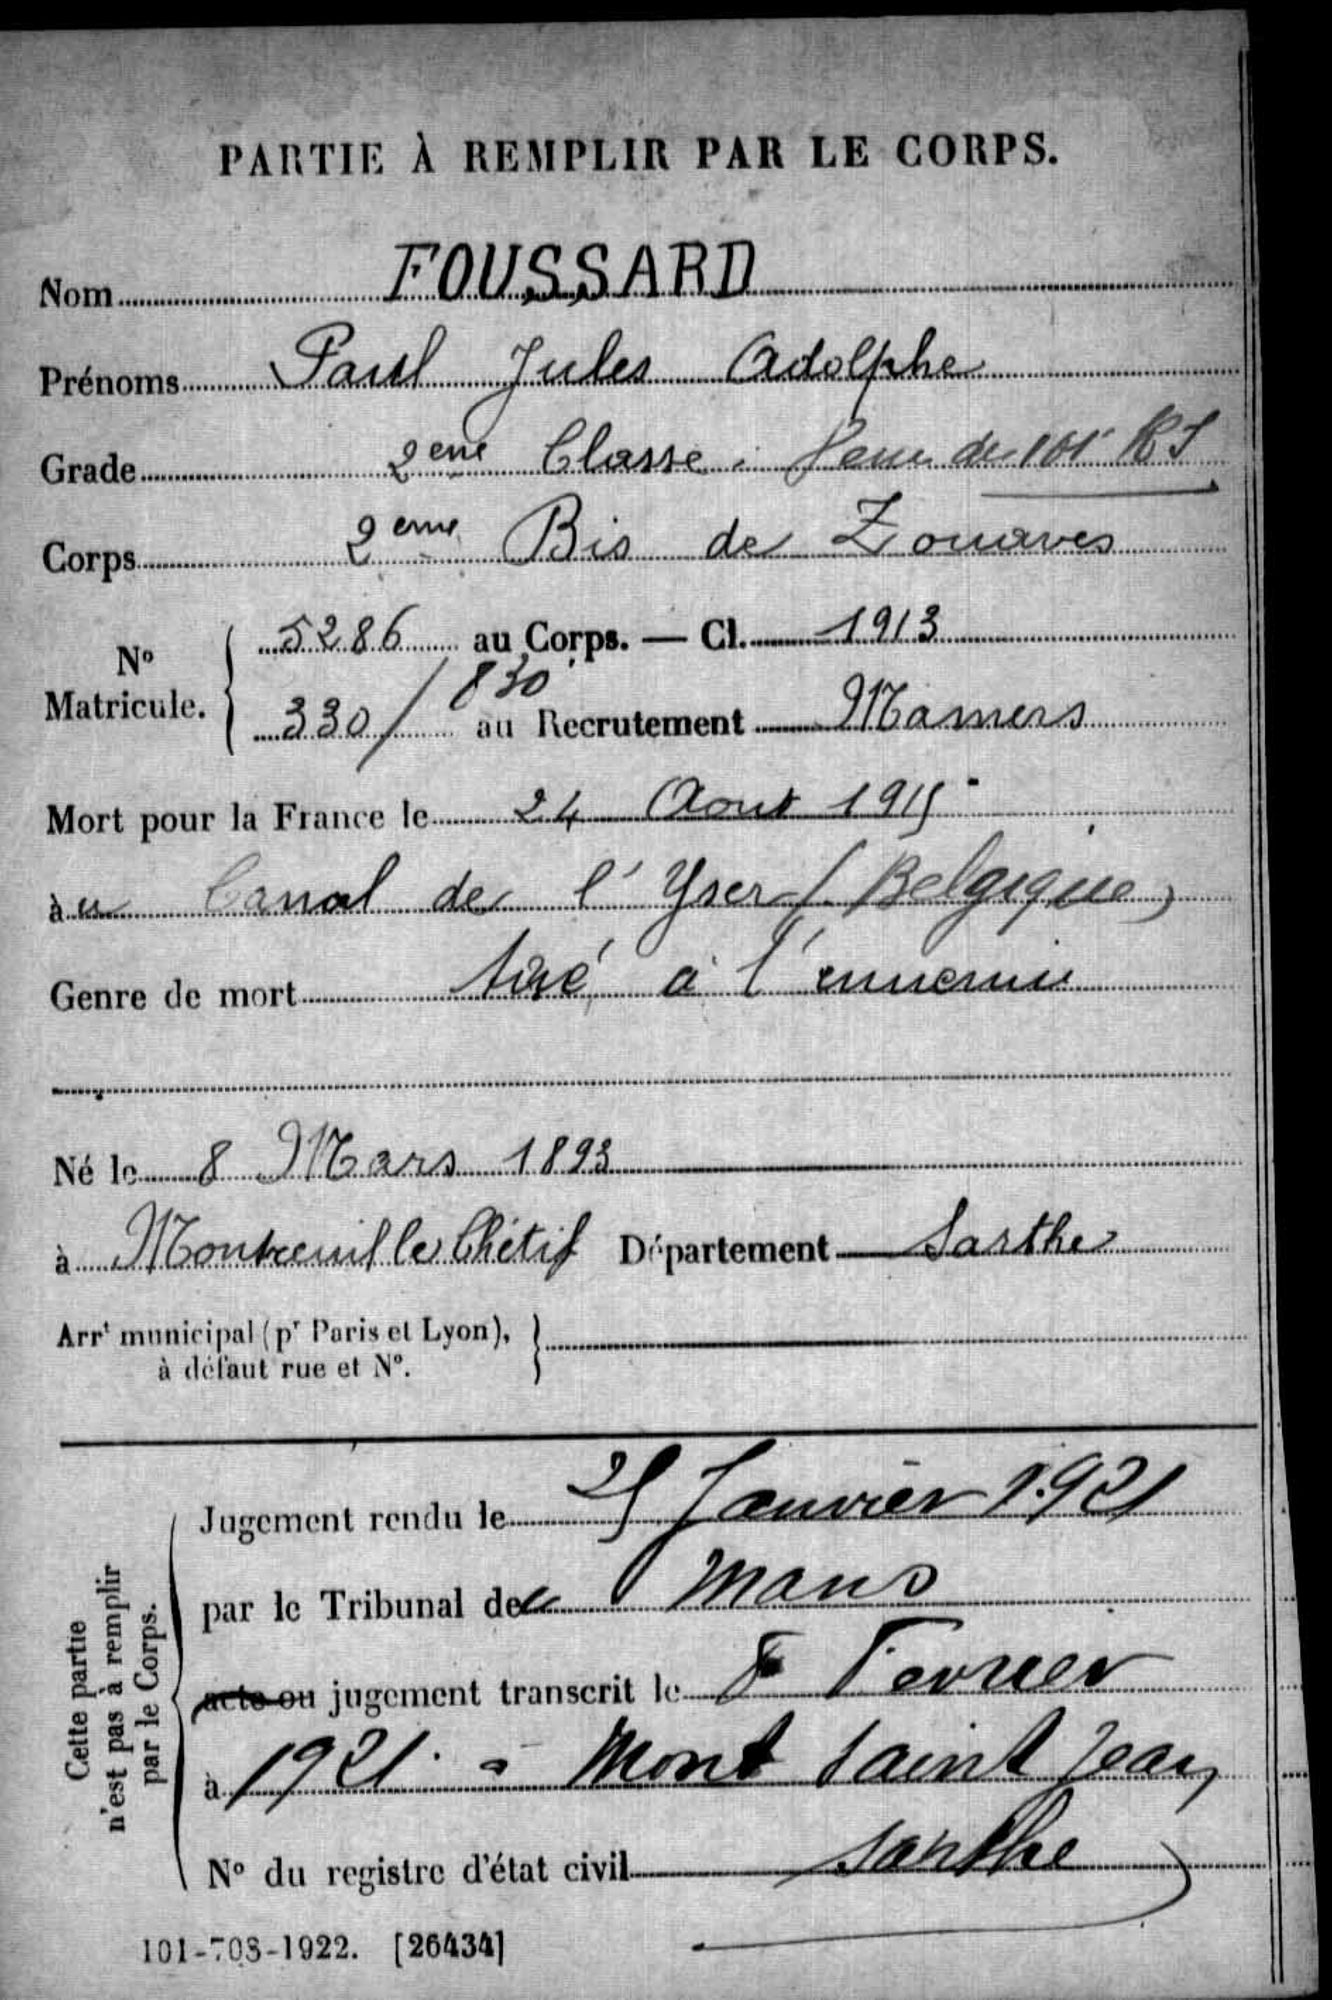 PARTIE À REMPLIR PAR LE CORPS.
Nom FOUSSARD
Prénoms Paul Jules Adolphe
Grade 2eme Classe. Venu du 101e RI
Corps 2eme Bis de Zouaves
No Matricule. 5286 au Corps. — Cl. 1913
330/830 au Recrutement Mamers
Mort pour la France le 24 Aout 1915
au Canal de l'Yser (Belgique)
Genre de mort tué à l'ennemi
Né le 8 Mars 1893
à Montreuil le Chétif Département Sarthe
Arrt municipal (pr Paris et Lyon),
à défaut rue et N°.
Cette partie
n'est pas à remplir
par le Corps.
Jugement rendu le 25 Janvier 1921
par le Tribunal de Mans
acte ou jugement transcrit le 8 Fevrier
à 1921. à Mont Saint Jean
N° du registre d'état civil Sarthe
101-708-1922. [26434]